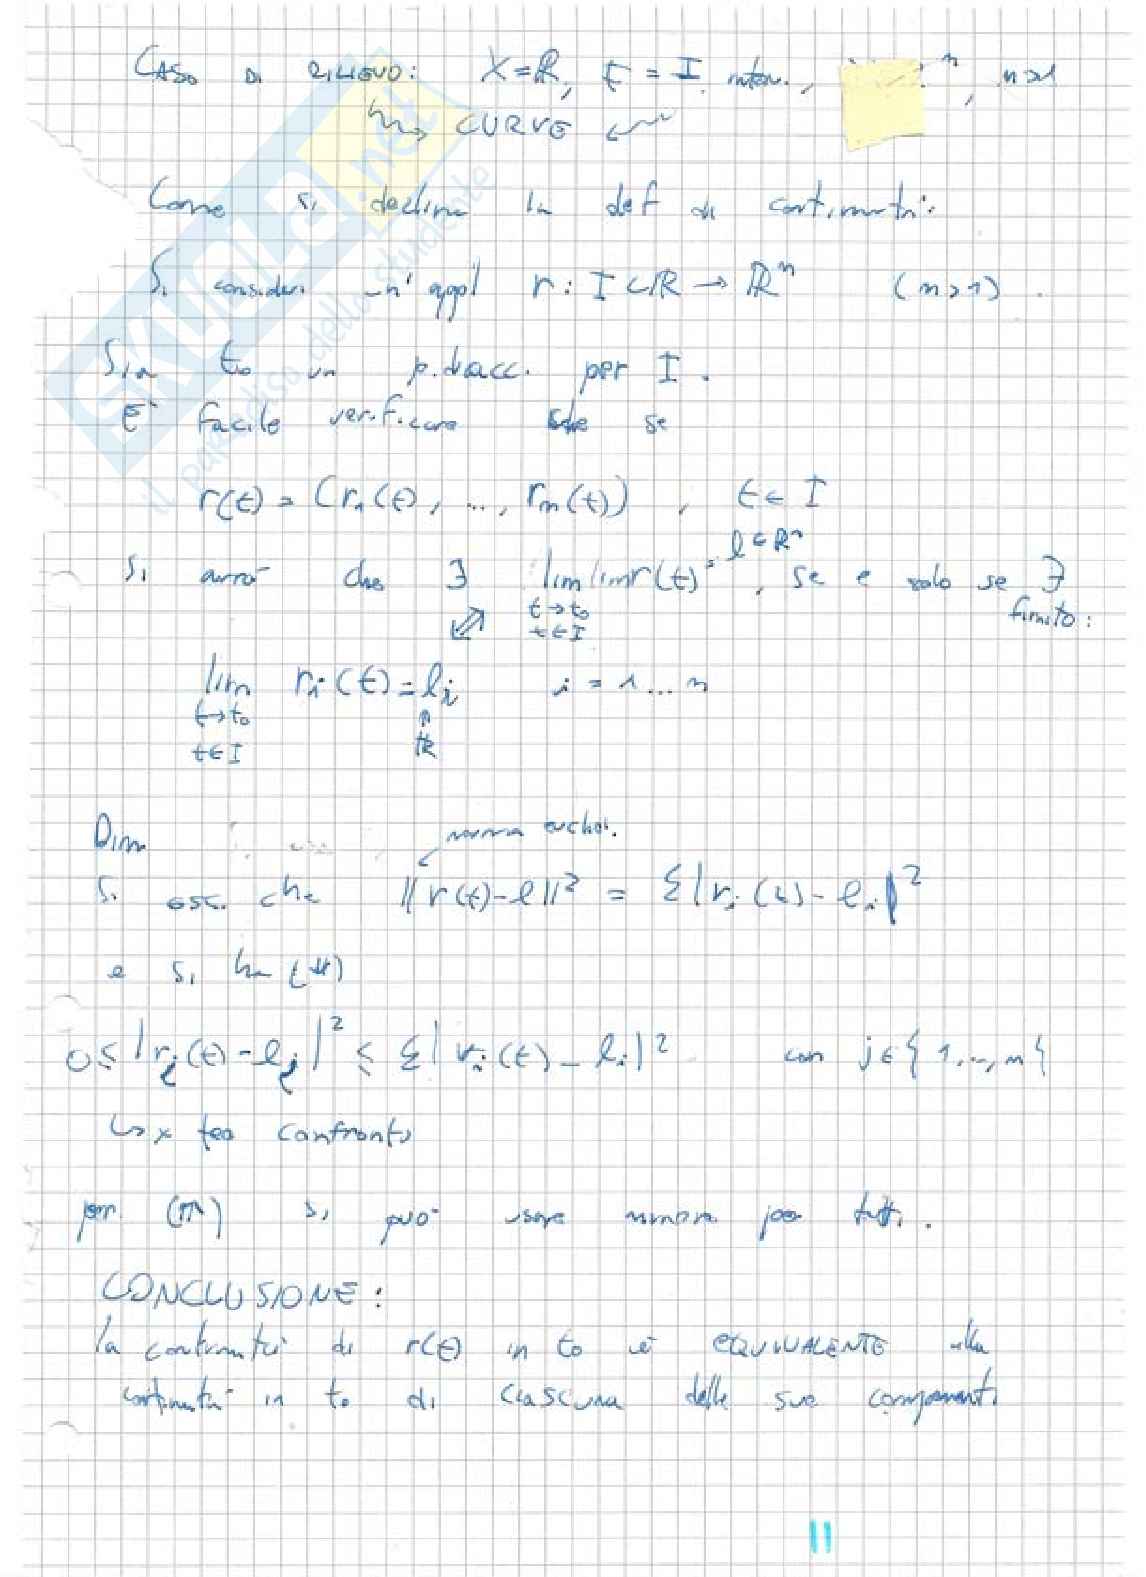 CASO DI RILIEVO: X=ℝ, E = I interv., n, n>1
CURVE
Come si declina la def di continuità:
Si consideri un' appl r: I⊂ℝ → ℝⁿ (n>1).
Sia t₀ un p. di acc. per I.
E' facile verificare che se
r(t) = (r₁(t), ..., rₙ(t)), t∈I
si avrà che ∃ lim lim r(t) = l∈ℝⁿ, se e solo se ∃
t→t₀ finito:
t∈I
lim rᵢ(t) = lᵢ i = 1...n
t→t₀
t∈I ℝ
Dim
norma euclid.
Si oss. che ||r(t)-l||² = Σ|rᵢ(t)-lᵢ|²
e si ha (#)
0≤|rⱼ(t)-lⱼ|² ≤ Σ|rᵢ(t)-lᵢ|² con j∈{1,..,n{
↳ x teo confronto
per si può usare per tutti.
CONCLUSIONE:
la continuità di r(t) in t₀ è EQUIVALENTE alla
continuità in t₀ di ciascuna delle sue componenti
11
SKUOLA.net
il paradiso dello studente